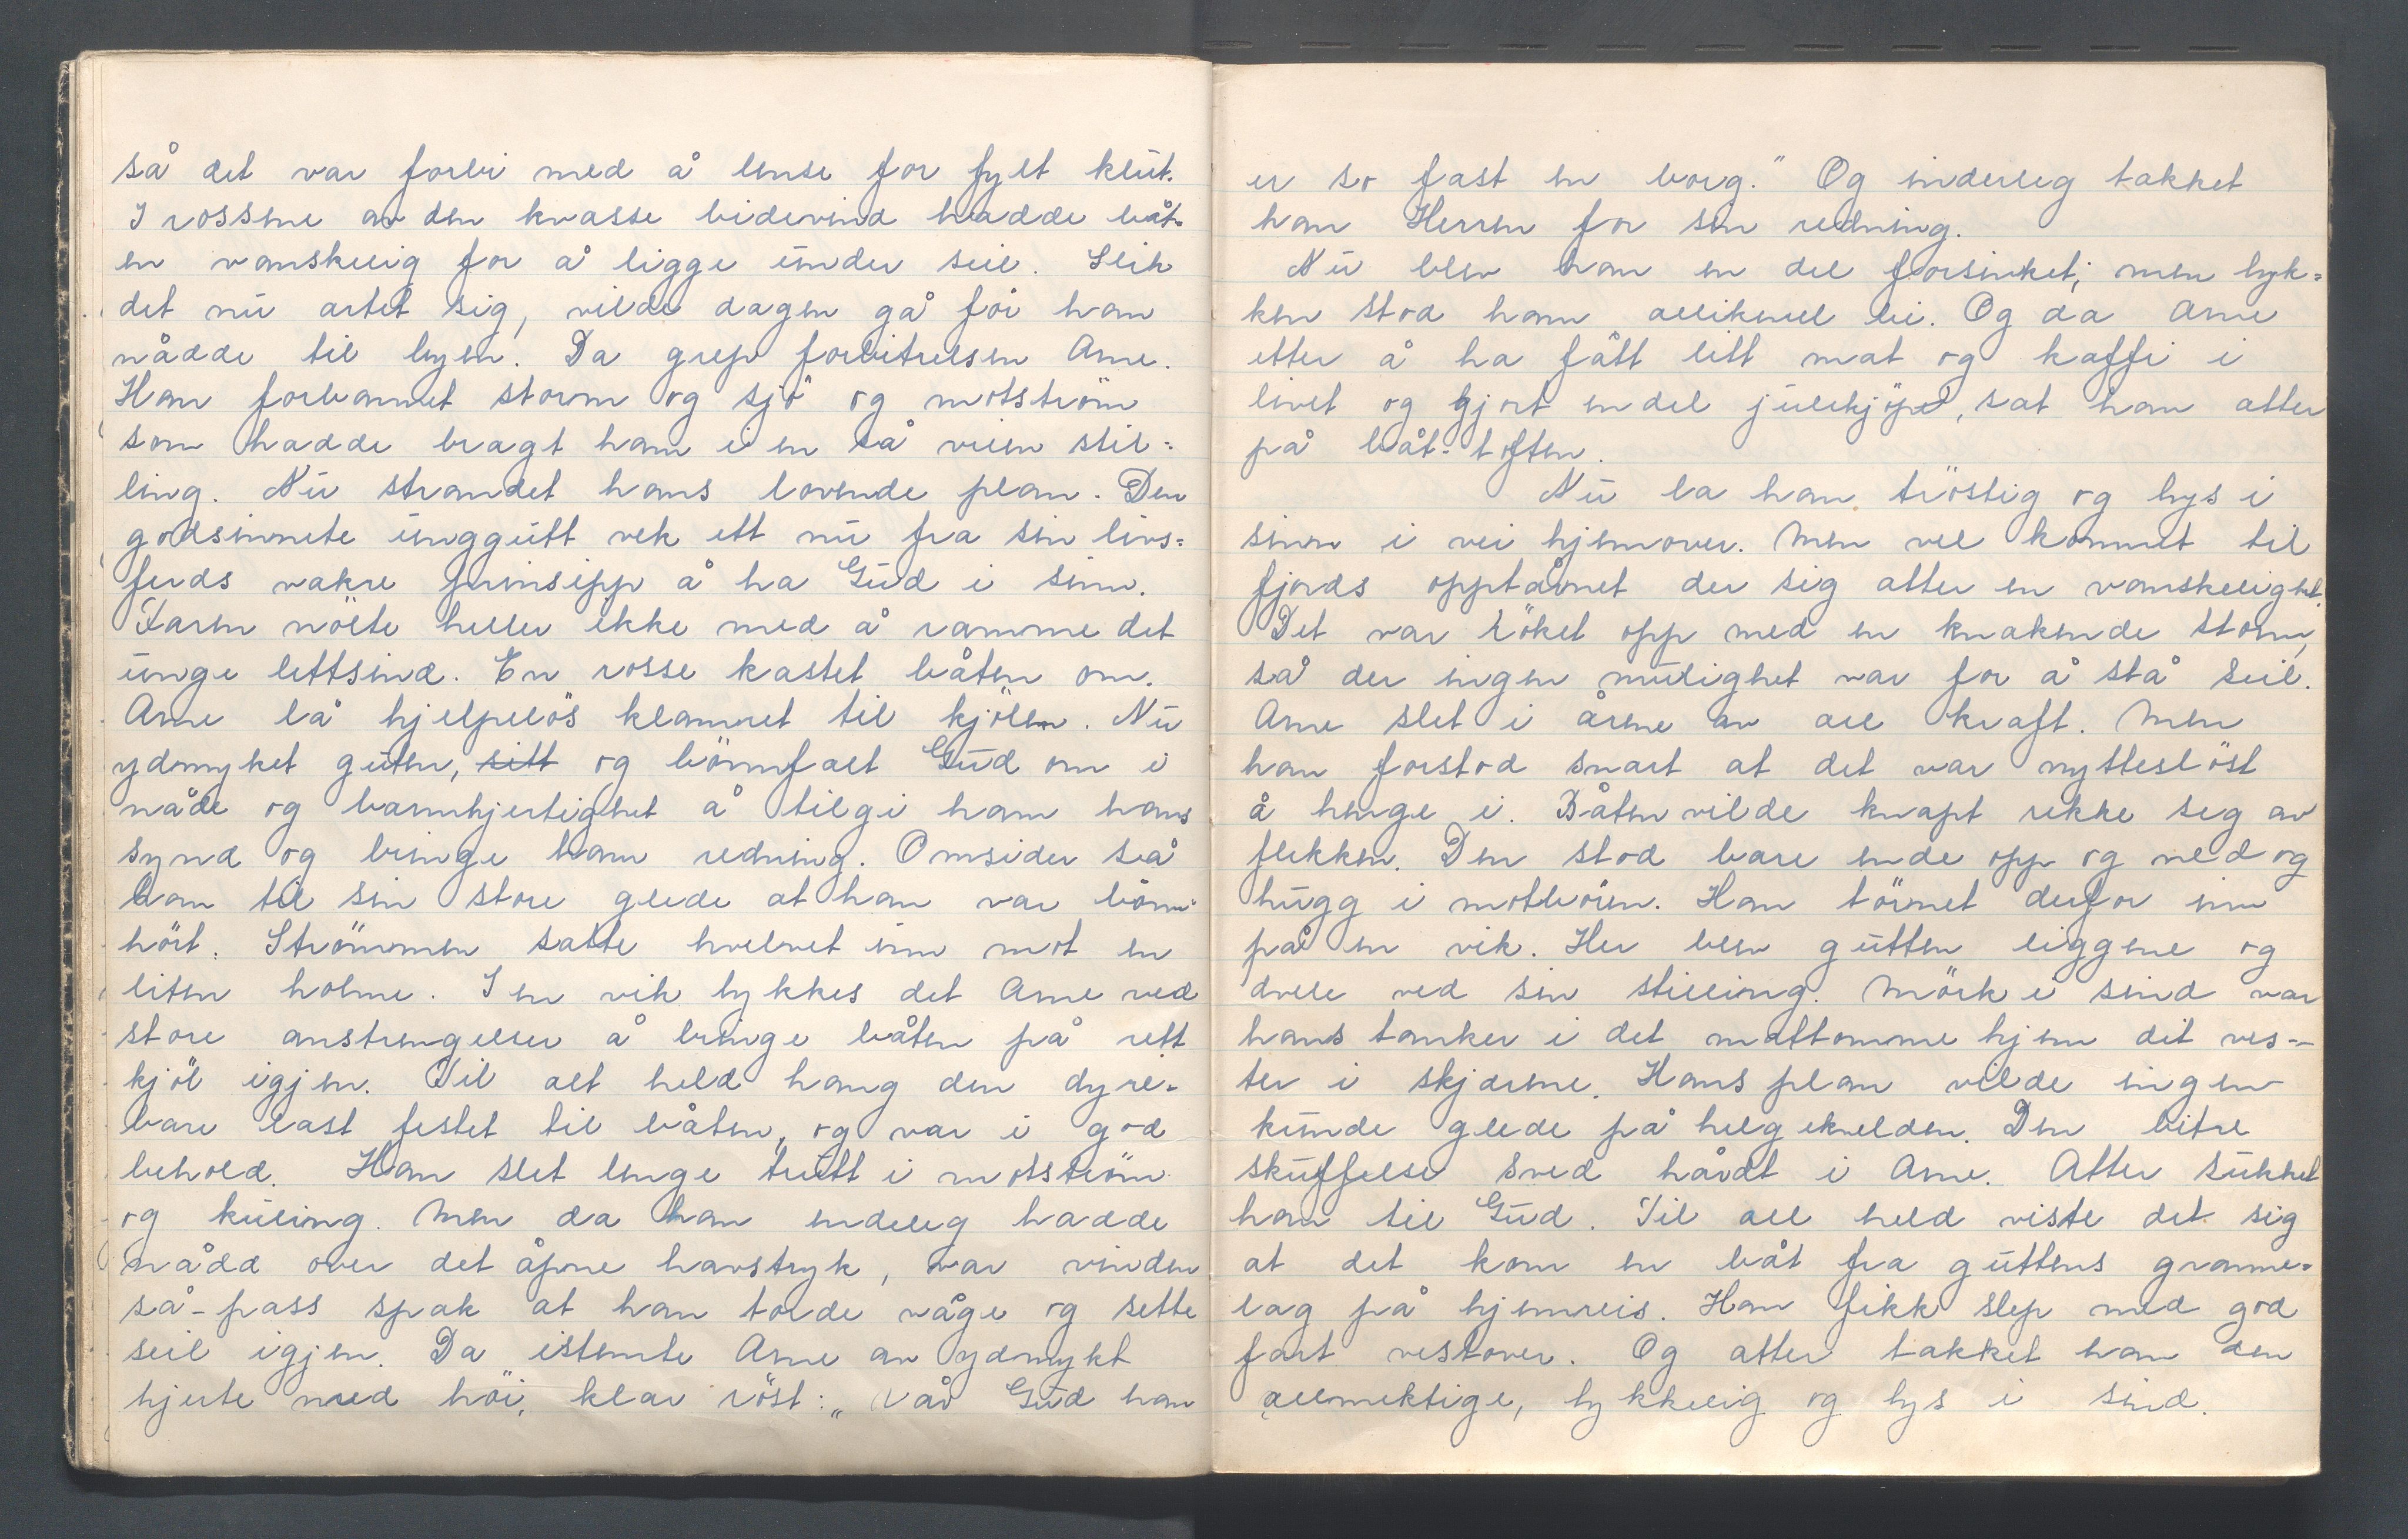 så det var forbi med å lense for fylt klut.
I rossene av den kvasse bidevind hadde båt-
en vanskelig for å ligge under seil. Slik
det nu artet sig, vilde dagen gå för han
nådde til byen. Da grep forbitrelsen Arne.
Han forbannet storm og sjö og motström
som hadde bragt ham i en så veien stil=
ling. Nu strandet hans lovende plan. Den
godsinnete unggutt vek ett nu fra sin livs=
ferds vakre prinsipp å ha Gud i sinn.
Faren nölte heller ikke med å ramme det
unge lettsind. En rosse kastet båten om.
Arne lå hjelpelös klamret til kjölen. Nu
ydmyket guten, sitt og bönnfalt Gud om i
nåde og barmhjertighet å tilgi ham hans
synd og bringe ham redning. Omsider så
han til sin store glede at han var bönn-
hört. Strömmen satte hvelvet inn mot en
liten holme. I en vik lykkes det Arne ved
store anstrengelser å bringe båten på rett
kjöl igjen. Til alt held hang den dyre-
bare last festet til båten, og var i god
behold. Han slet lenge trutt i motström
og kuling. Men da han endelig hadde
nådd over det åpne havstryk, var vinden
så-pass spak at han torde våge og sette
seil igjen. Da istemte Arne av ydmykt
hjerte med höi, klar röst: „Vår Gud han
er so fast en borg." Og inderlig takket
han Herren for sin redning.
Nu blev han en del forsinket; men lyk=
ken stod ham allikevel bi. Og da Arne
etter å ha fått litt mat og kaffi i
livet og gjort endel julekjöp, sat han atter
på båt-toften.
Nu la han tröstig og lys i
sinn i vei hjemover. Men vel kommet til
fjords opptårnet der sig atter en vanskelighet.
Det var röket opp med en knakende storm,
så der ingen mulighet var for å stå seil.
Arne slet i årene av all kraft. Men
han forstod snart at det var nytteslöst
å henge i. Båten vilde knapt rekke seg av
flekken. Den stod bare ende opp og ned og
hugg i motbören. Han törnet derfor inn
på en vik. Her blev gutten liggene og
dvele ved sin stilling. Mörk i sind var
hans tanker i det mattomme hjem dit ves-
ter i skjærene. Hans plan vilde ingen
kunde glede på helgekvelden. Den bitre
skuffelse sved hårdt i Arne. Atter sukket
han til Gud. Til all held viste det sig
at det kom en båt fra guttens granne-
lag på hjemreis. Han fikk slep med god
fart vestover. Og atter takket han den
allmektige, lykkelig og lys i sind.